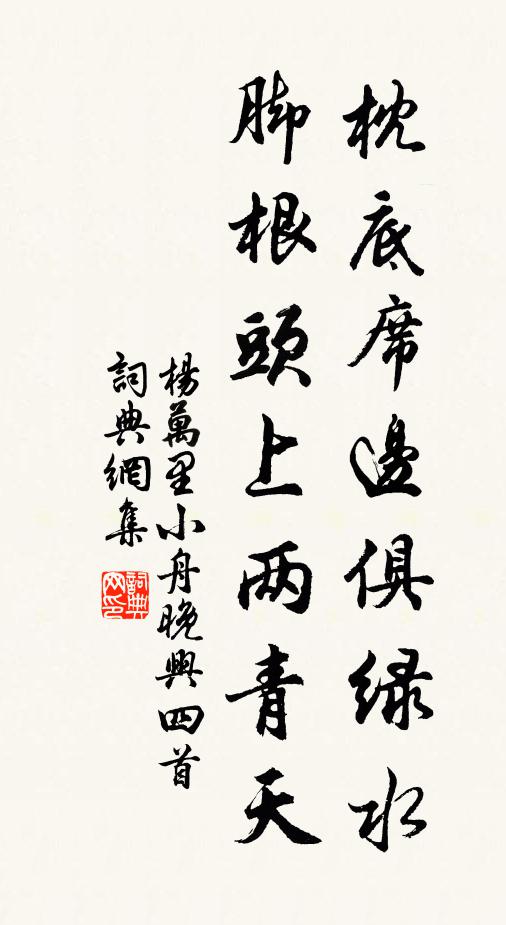 枕底席邊俱緑水
脚根頭上两青天
楊萬里小舟晚興四首
詞典網集
詞典网印